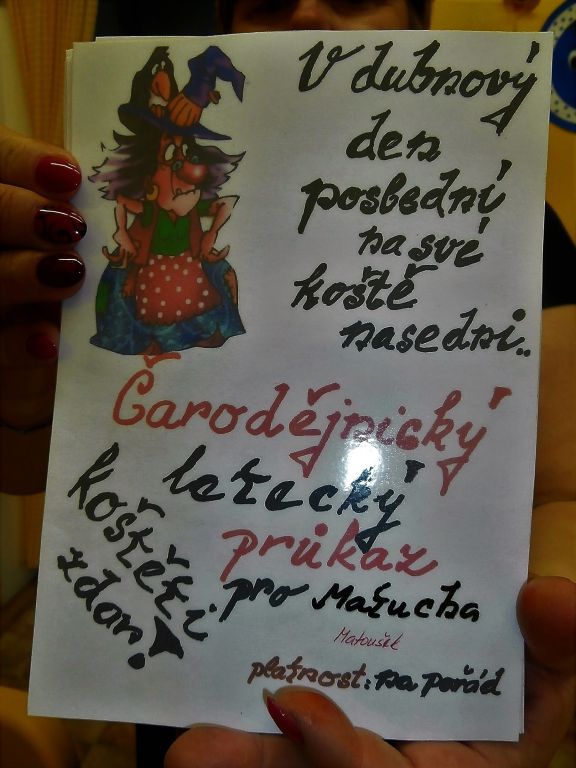 V dubnový
den
poslední
na své
koště
nasedni..
Čarodějnický
letecký
průkaz
pro Maťucha
Matoušek
platnost: na pořád
koštěti
zdar!